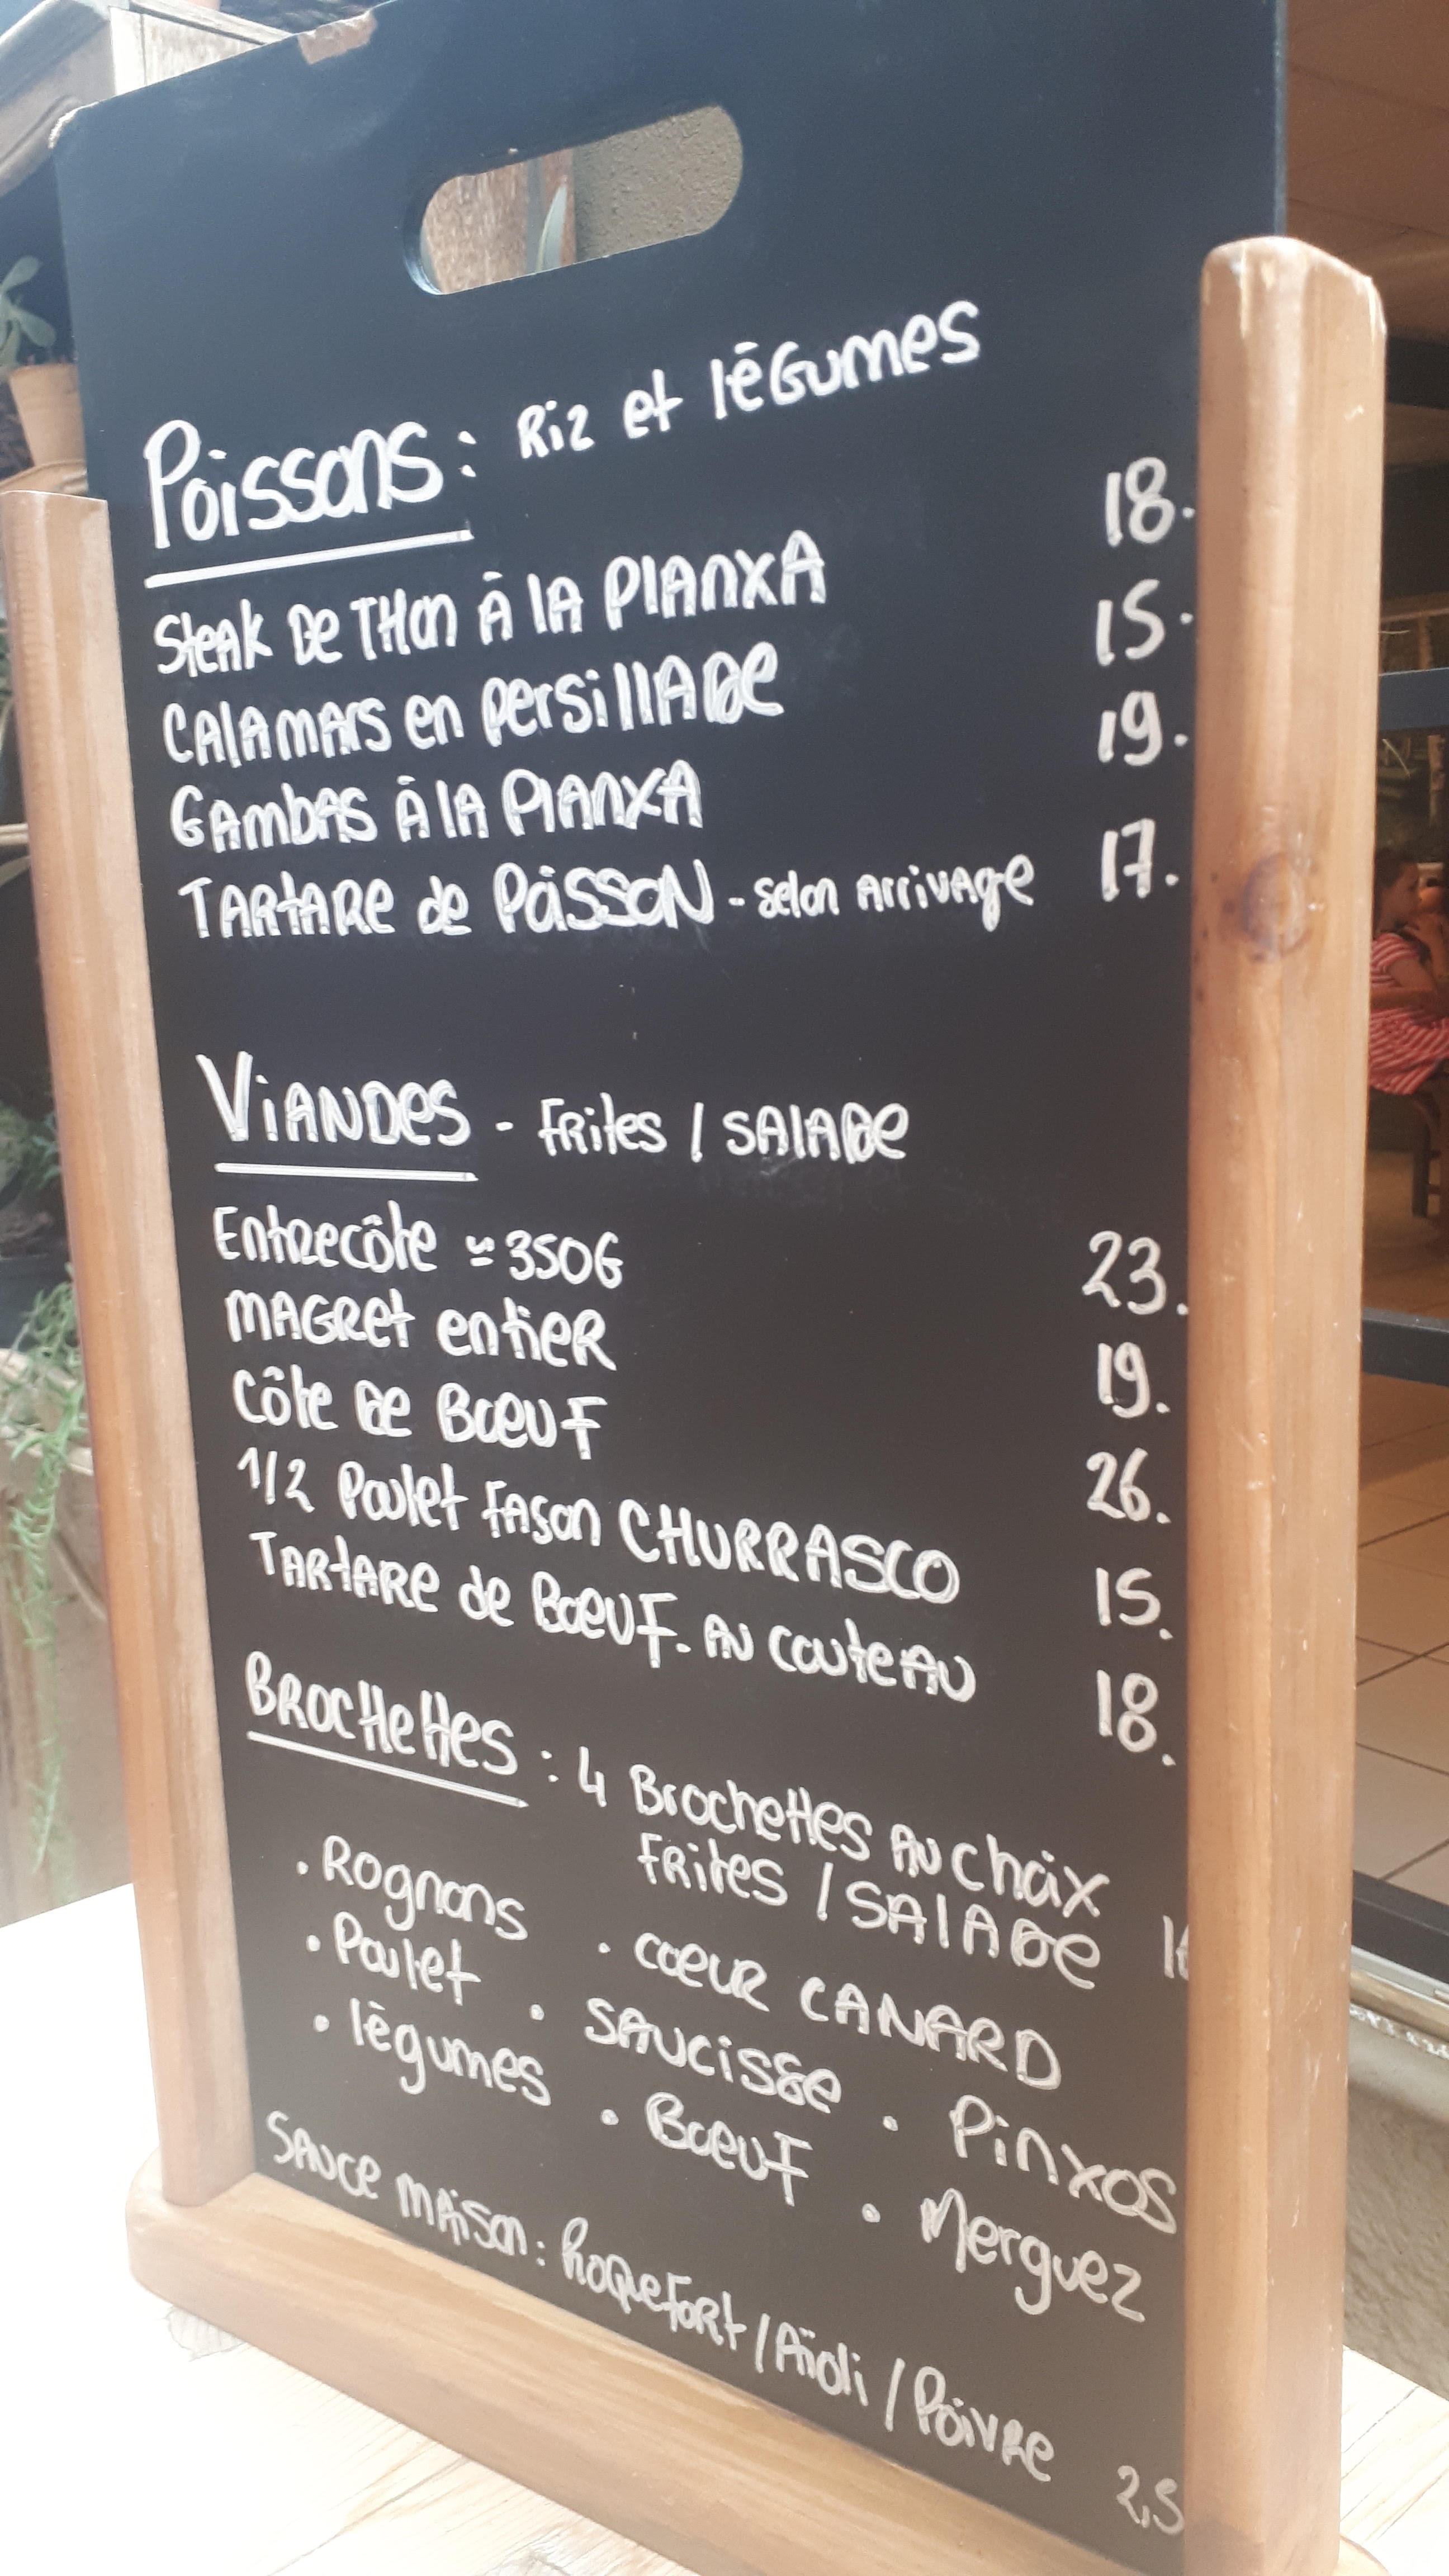 Poissons : Riz et légumes
Steak de Thon à la Planxa 18.
Calamars en persillade 15.
Gambas à la Planxa 19.
Tartare de Poisson - selon arrivage 17.
Viandes - Frites / Salade
Entrecôte ≃ 350G 23.
Magret entier 19.
Côte de Boeuf 26.
1/2 Poulet Fason CHURRASCO 15.
Tartare de Boeuf. au couteau 18.
Brochettes : 4 Brochettes au choix
Frites / Salade
. Rognons . coeur CANARD
. Poulet . Saucisse . Pinxos
. légumes . Boeuf . Merguez
Sauce maison : Roquefort / Aïoli / Poivre 2,5